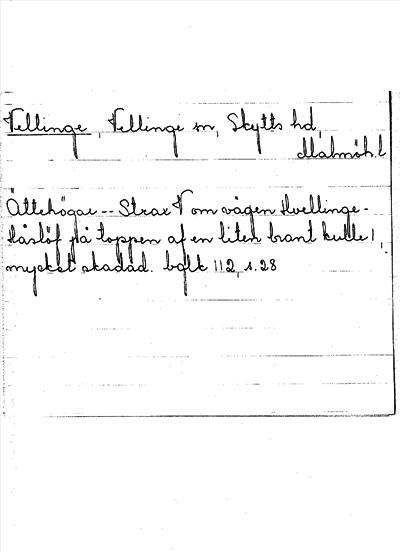 Vellinge, Vellinge sn, Skytts hd,
Malmöh. l
Ättehögar -- Strax V om vägen Hvellinge-
Håslöf på toppen af en liten brant kulle 1,
mycket skadad. bqlt 112, s. 28